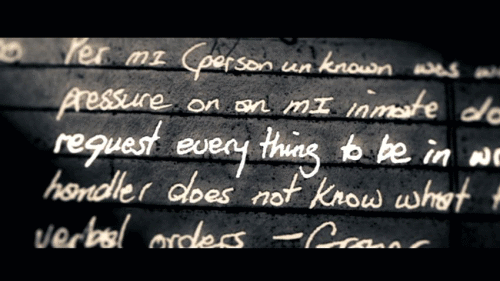 Per MI (person unknown was
pressure on an MI inmate
request every thing to be in
handler does not know what
verbal orders —